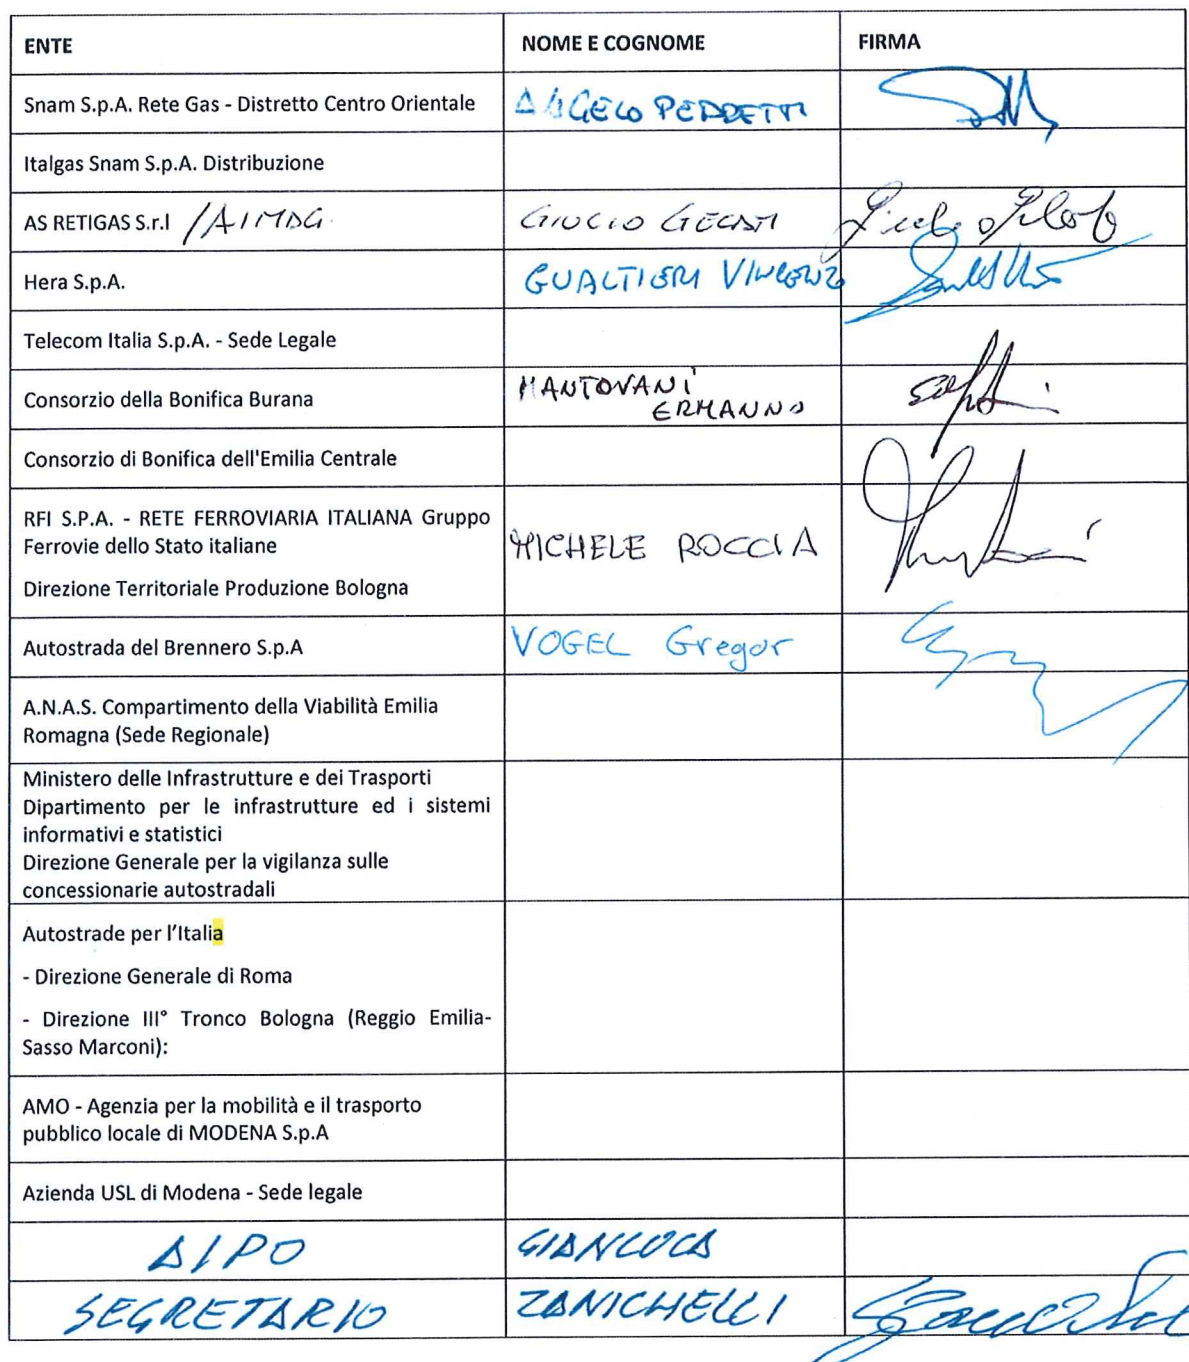 ENTE NOME E COGNOME FIRMA
Snam S.p.A. Rete Gas - Distretto Centro Orientale ANGELO PEDRETTI
Italgas Snam S.p.A. Distribuzione
AS RETIGAS S.r.l /AIMAG GIULIO
Hera S.p.A. GUALTIERI VINCENZO
Telecom Italia S.p.A. - Sede Legale
Consorzio della Bonifica Burana MANTOVANI
ERMANNO
Consorzio di Bonifica dell'Emilia Centrale
RFI S.P.A. - RETE FERROVIARIA ITALIANA Gruppo
Ferrovie dello Stato italiane MICHELE ROCCIA
Direzione Territoriale Produzione Bologna
Autostrada del Brennero S.p.A VOGEL Gregor
A.N.A.S. Compartimento della Viabilità Emilia
Romagna (Sede Regionale)
Ministero delle Infrastrutture e dei Trasporti
Dipartimento per le infrastrutture ed i sistemi
informativi e statistici
Direzione Generale per la vigilanza sulle
concessionarie autostradali
Autostrade per l'Italia
- Direzione Generale di Roma
- Direzione III° Tronco Bologna (Reggio Emilia-
Sasso Marconi):
AMO - Agenzia per la mobilità e il trasporto
pubblico locale di MODENA S.p.A
Azienda USL di Modena - Sede legale
AIPO GIANLUCA
SEGRETARIO ZANICHELLI